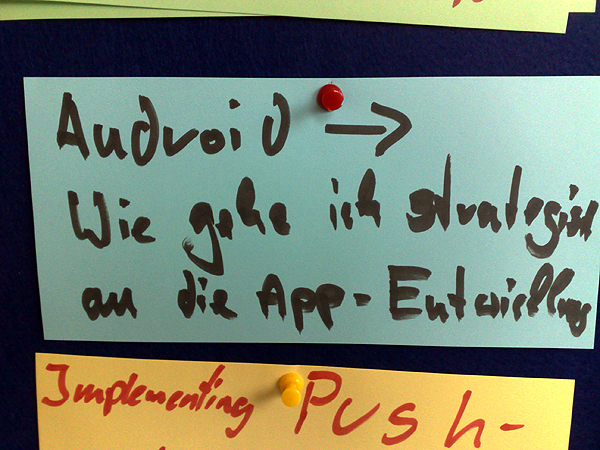 Android →
Wie gehe ich strategisch
an die App-Entwicklung
Implementing Push-